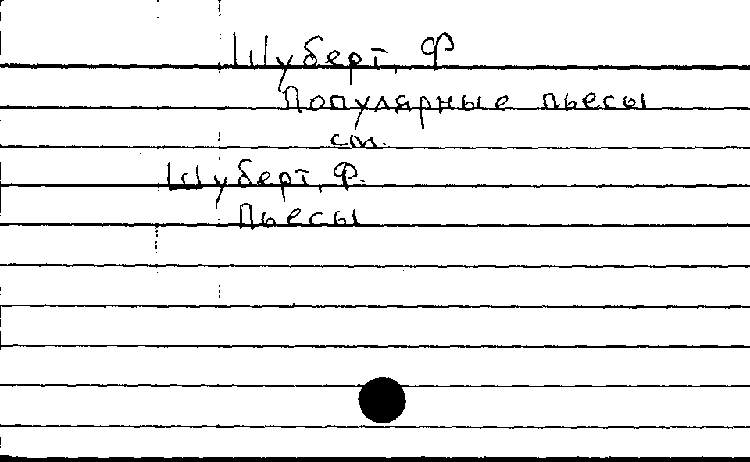 Шуберт, Ф
Популярные пьесы
см.
Шуберт, Ф.
Пьесы